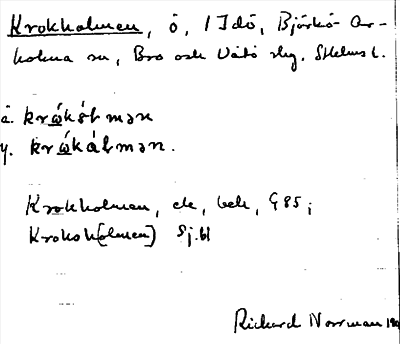 Krokholmen, ö, i Idö, Björkö-Ar-
holma sn, Bro och Vätö skg, Sthlms l.
ä. krώ̣kól̥mən
y. krώ̣kàl̥mən.
Krokholmen, ek, bek, G 85;
Krokoh[olmen] Sj.bl
Richard Norrman